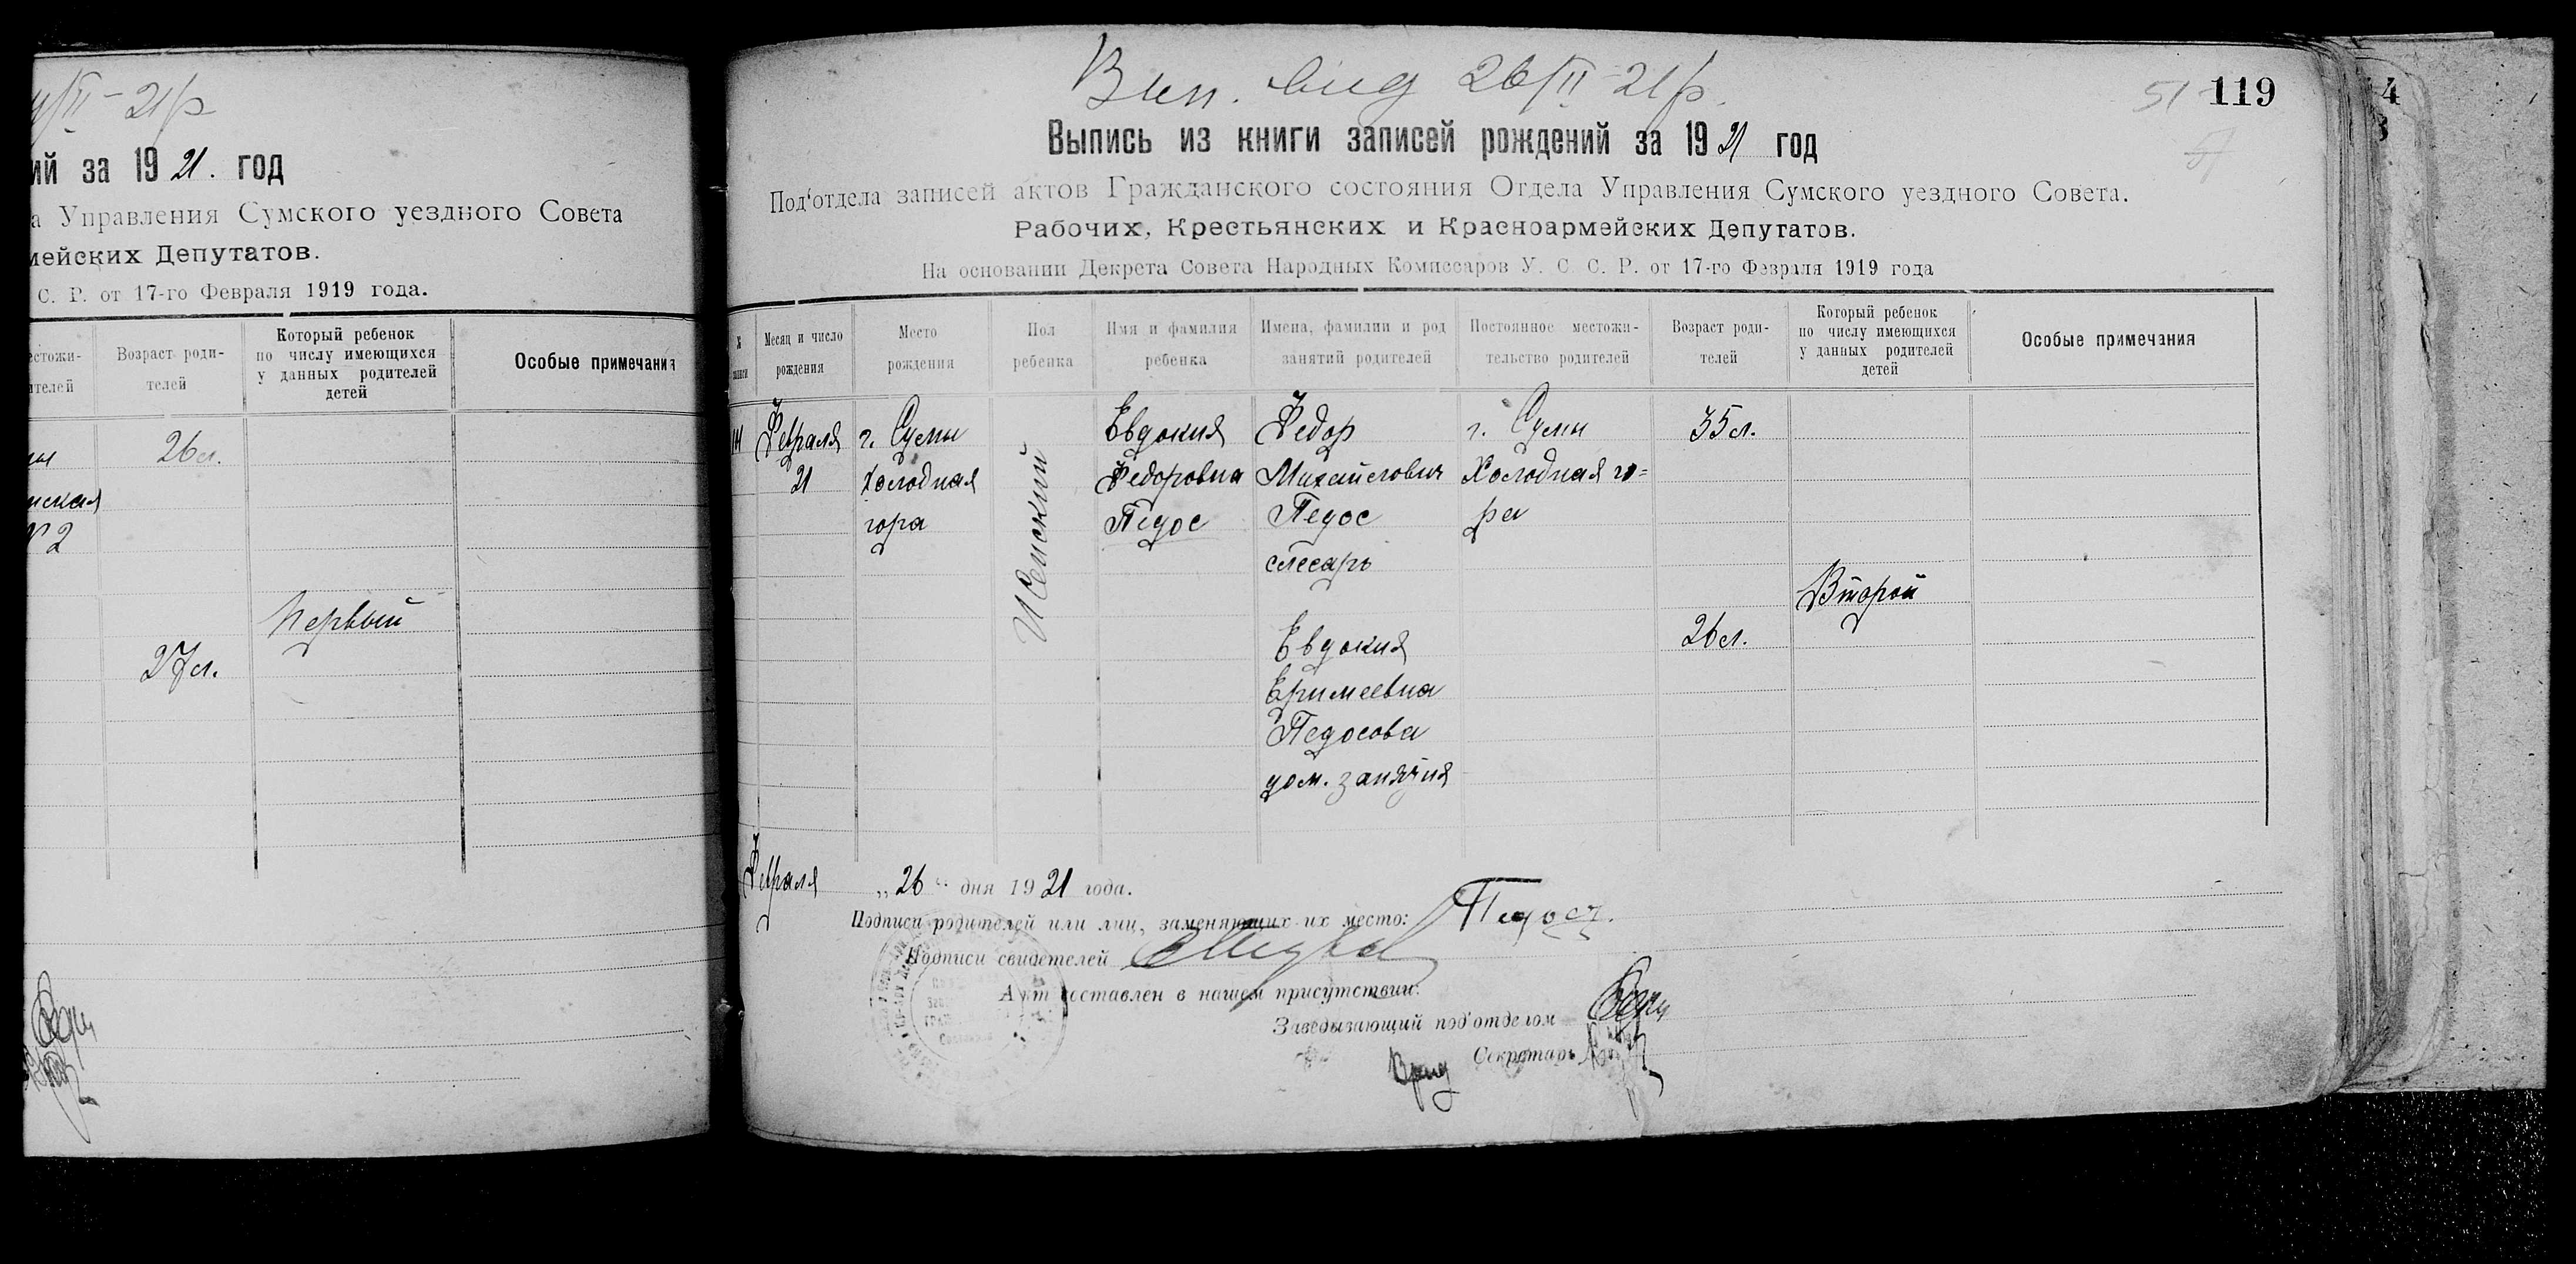 /II - 21р
ий за 19 21. год
а Управления Сумского уездного Совета
мейских Депутатов.
С. Р. от 17-го Февраля 1919 года.
естожи-
ителей
Возраст роди-
телей
Который ребенок
по числу имеющихся
у данных родителей
детей
Особые примечания
26 л.
№ 2
Первый
27 л.
Вип. вид 26/II - 21р.
51 119
Выпись из книги записей рождений за 19 21 год
Под'отдела записей актов Гражданского состояния Отдела Управления Сумского уездного Совета.
Рабочих, Крестьянских и Красноармейских Депутатов.
На основании Декрета Совета Народных Комиссаров У. С. С. Р. от 17-го Февраля 1919 года
Месяц и число
рождения
Место
рождения
Пол
ребенка
Имя и фамилия
ребенка
Имена, фамилии и род
занятий родителей
Постоянное местожи-
тельство родителей
Возраст роди-
телей
Который ребенок
по числу имеющихся
у данных родителей
детей
Особые примечания
Февраля
21
г. Сумы
Холодная
гора
Женский
Евдокия
Федоровна
Педос
Федор
Михайлович
Педос
слесарь
Евдокия
Еримеевна
Педосова
дом. занятия
г. Сумы
Холодная го=
ра
35 л.
26 л.
Второй
Февраля „26“ дня 19 21 года.
Подписи родителей или лиц, заменяющих их место: Педос
Подписи свидетелей
Акт составлен в нашем присутствии:
Заведывающий под'отделом
Врид Секретарь